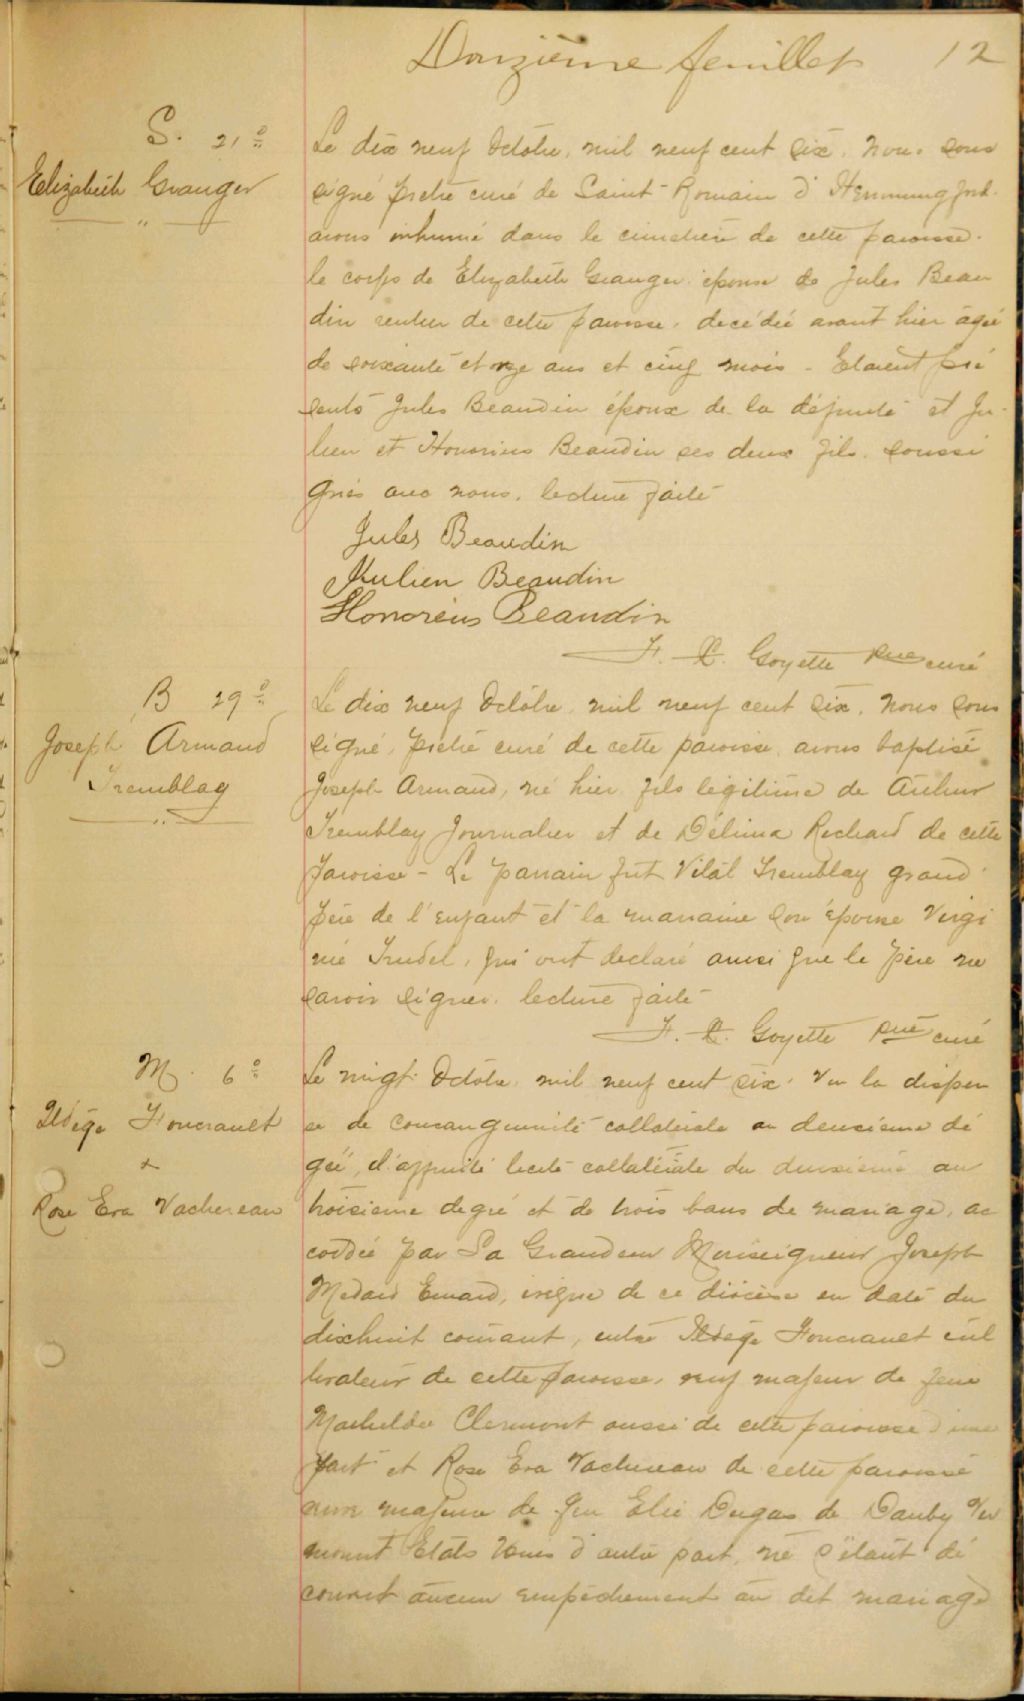 Douzième feuillet 12
S. 21°
Elizabeth Granger
Le dix neuf Octobre, mil neuf cent six, nous sous
signé prêtre curé de Saint-Romain d'Hemmingford.
avons inhumé dans le cimetière de cette paroisse.
le corps de Elizabeth Granger épouse de Jules Beau
din rentier de cette paroisse, decédée avant hier agée
de soixante et onze ans et cinq mois - Etaient pré
sents Jules Beaudin époux de la défunte et Ju-
lien et Honorius Beaudin ses deux fils soussi
gnés avec nous. lecture faite
Jules Beaudin
Julien Beaudin
Honoreus Beaudin
F. X. Goyette ptre curé
B 29°
Joseph Armand
Tremblay
Le dix neuf Octobre, mil neuf cent six, nous sous
signé, prêtre curé de cette paroisse, avons baptisé
Joseph Armand, né hier fils légitime de Arthur
Tremblay Journalier et de Délima Richard de cette
paroisse - Le parrain fut Vital Tremblay grand
père de l'enfant et la marraine son épouse Virgi
nie Trudel, qui ont declaré ainsi que le père ne
savoir signer. lecture faite
F. X. Goyette ptre curé
M. 6°
Ildège Fourcault
+
Rose Eva Vachereau
Le vingt Octobre, mil neuf cent six, Vu la dispen
se de consanguinité collatérale au deuxième dé
gré, d'affinité licite collatérale du deuxième au
troisième degré et de trois bans de mariage, ac
cordée par Sa Grandeur Monseigneur Joseph
Medard Emard, évêque de ce diocèse en date du
dixhuit courant, entre Ildège Fourcault cul
tivateur de cette paroisse, veuf majeur de feue
Mathilde Clermont aussi de cette paroisse d'une
part et Rose Eva Vachereau de cette paroisse
veuve majeure de feu Elie Dugas de Danby Ver
mount Etats Unis d'autre part, ne s'étant dé
couvert aucun empêchement au dit mariage